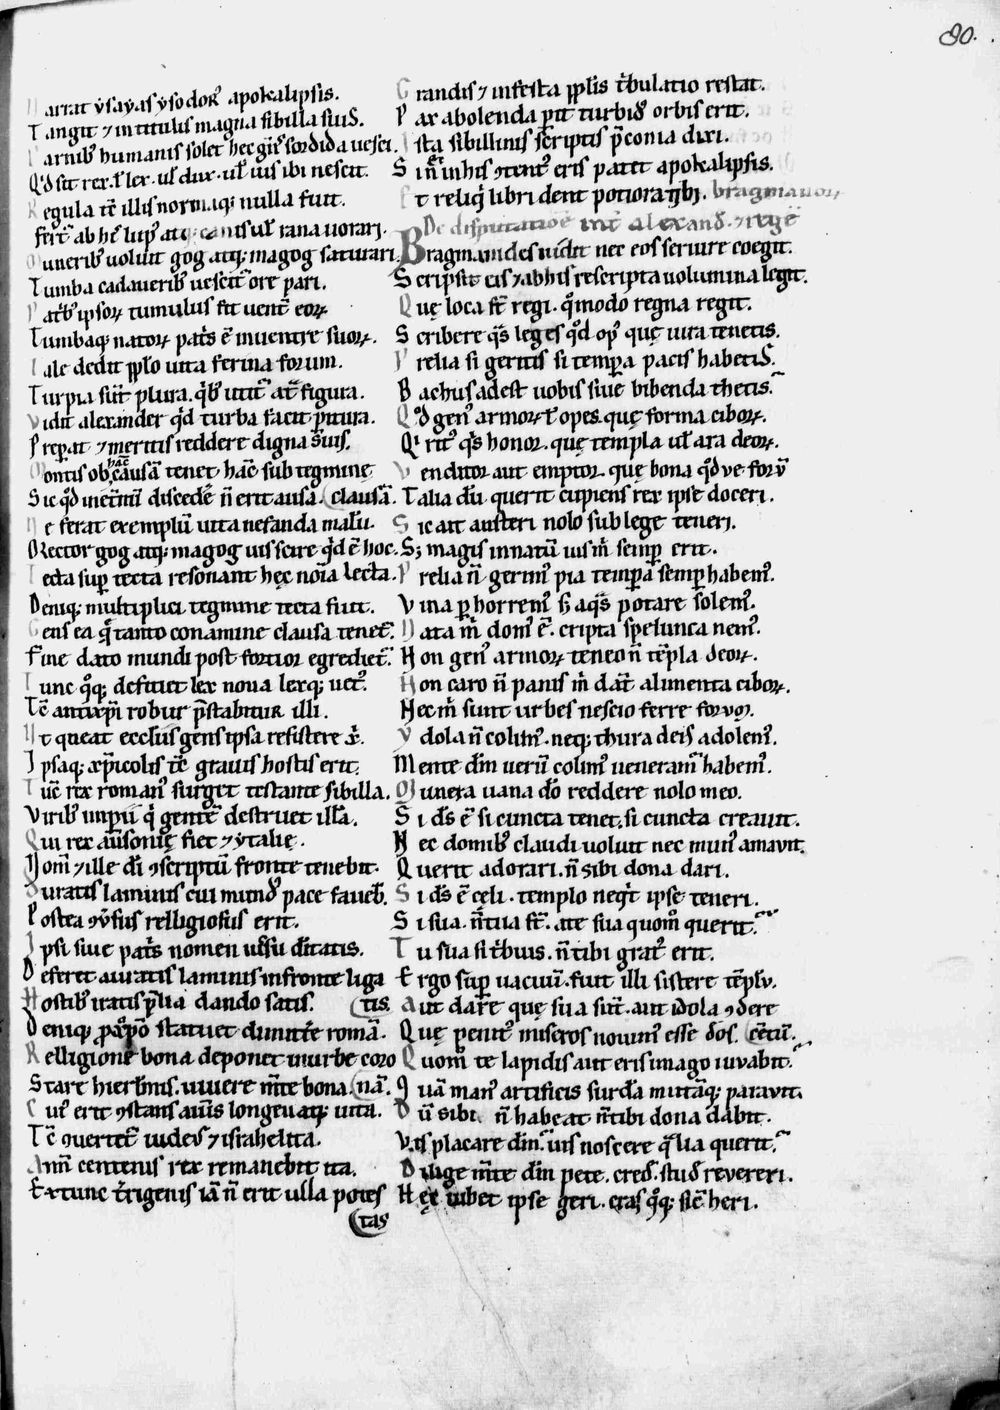 80.
Narrat ysayas ysodorꝰ apokalipsis.
Tangit ⁊ intitulis magna sibilla suis.
Carnibꝰ humanis solet hec gēs sordida uesci.
Qd̄ sit rex. ł lex. uł dux. uł ius ibi nescit.
Regula tc̄ illis normaqꝫ nulla fuit.
fert᷑ ab hꝭ lupꝰ atqꝫ canis uł rana uorari.
Muneribꝰ uoluit gog atqꝫ magog saturari
Tumba cadaueribꝰ uescit᷑ ore pari.
Patbꝰ ipsoꝝ tumulus fit uent᷑ eoꝝ
Tumbaqꝫ natoꝝ pat̄s ē inuentre suoꝝ.
Tale dedit pplo uita ferina forum.
Turpia sūt plura. qͥbꝰ utit᷑ at̄ figura.
Vidit alexander qͥd turba facit pitura.
Preparat ⁊ meritis reddere digna suis.
Montis ob hāc causā tenet hāc sub tegminę
Sic qd̄ inet᷑nū discedē n̄ erit ausa. clausā.
Ne ferat exemplū uita nefanda malū.
Rector gog atqꝫ magog uis scire qͥd ē hoc.
Tecta suꝑ tecta resonant hęc noīa lecta.
Deniqꝫ multiplici tegmine tecta fuit.
Gens ea qͣ tanto conamine clausa tenet᷑.
Fine dato mundi post fortior egrediet᷑.
Tunc qͦqꝫ defitiet lex noua lexqꝫ uetꝰ.
Tc̄ antixp̄i robur p̄stabitur illi.
Ut queat eccl̄iis gens ipsa resistere
Ipsaqꝫ xp̄icolis tc̄ grauis hostis erit.
Tūc rex romanꝰ surget testante sibilla.
Viribꝰ imperii qͥ gentē destruet illā.
Qui rex ausonię fiet ⁊ ytalię.
Nom̄ ⁊ ille dī ꝯscriptū fronte tenebit.
Duratis laminis cui mundꝰ pace fauebit.
Postea ꝯuersus religiosus erit.
Ipsi siue pat̄s nomen uersu ditatis.
Deferet auratis laminis infronte ligatis.
Hostibꝰ iratis prelia dando satis.
Deniqꝫ ꝓposito statuet dimittere romā.
Relligione bona deponet inurbe coronā.
Stare hierlmis. uiuere mēte bona
Cuiꝰ erit ꝯstans auus longeuaqꝫ uita.
Tc̄ ꝯuertet᷑ iudeꝰ ⁊ israhelita.
Annis centenis rex remanebit ita.
Ex tunc t̄rigenis iā n̄ erit ulla potestas
Grandis ⁊ infesta pplis tribulatio restat.
Pax abolenda perit turbidꝰ orbis erit.
Ista sibillinis scriptis p̄conia dixi.
Sin̄ inhis ꝯtentꝰ eris patet apokalipsis.
Et reliqͥ libri dent potiora tibi.
De disputatione int᷑ alexand. ⁊ regē bragmanoꝝ
Bragmanides uidit nec eos seruire coegit.
Scripsit eis ⁊ abhis rescripta uolumina legit.
Quę loca sūt regi. qͦmodo regna regit.
Scribere qͣs leges qd̄ opꝰ quę iura tenetis.
Prelia si geritis si tempora pacis habetis.
Bachus adest uobis siue bibenda thetis.
Qd̄ genꝰ armoꝝ ł opes. quę forma ciboꝝ.
Qͥ ritꝰ qͥs honor. quę templa uł ara deoꝝ.
Venditor aut emptor. quę bona qd̄ ue forū
Talia dū querit cupiens rex ipse doceri.
Sic ait austeri nolo sub lege teneri.
Sꝫ magis innatū ius m̄ semꝑ erit.
Prelia n̄ gerimꝰ pia tempora semꝑ habemꝰ.
Vina ꝑhorremꝰ sꝫ aqͣs potare solemꝰ.
Nata m̄ domꝰ ē. cripta spelunca nemꝰ.
Non genꝰ armoꝝ teneo n̄ tēpla deoꝝ.
Non caro n̄ panis m̄ dat᷑ alimenta ciboꝝ.
Nec m̄ sunt urbes nescio ferre forum.
Ydola n̄ colimꝰ. neqꝫ thura deis adolemꝰ.
Mente dm̄ uerū colimꝰ ueneramꝰ habemꝰ.
Munera uana dō reddere nolo meo.
Si ds̄ ē si cuncta tenet. si cuncta creauit.
Nec domibꝰ claudi uoluit nec munꝰ amauit.
Querit adorari. n̄ sibi dona dari.
Si ds̄ ē cęli. templo neqͥt ipse teneri.
Si sua. n̄ tua sūt. a te sua quomō querit᷑.
Tu sua si tribuis. n̄ tibi gratꝰ erit.
Ergo suꝑ uacuū. fuit illi sistere tēplū.
Aut dare quę sua sūt. aut idola ꝯdere
Quę penitꝰ miseros nouimꝰ esse dōs. cētū.
Quom̄ te lapidis aut eris imago iuuabit.
Quā manꝰ artificis surdā mutāqꝫ parauit.
Dū sibi n̄ habeat n̄ tibi dona dabit.
Vis placare dm̄. uis noscere qͣlia querit᷑.
Dilige mēte dm̄ pete. cred. stud reuereri.
Hęc iubet ipse geri. cras qͦqꝫ sic̄ heri.